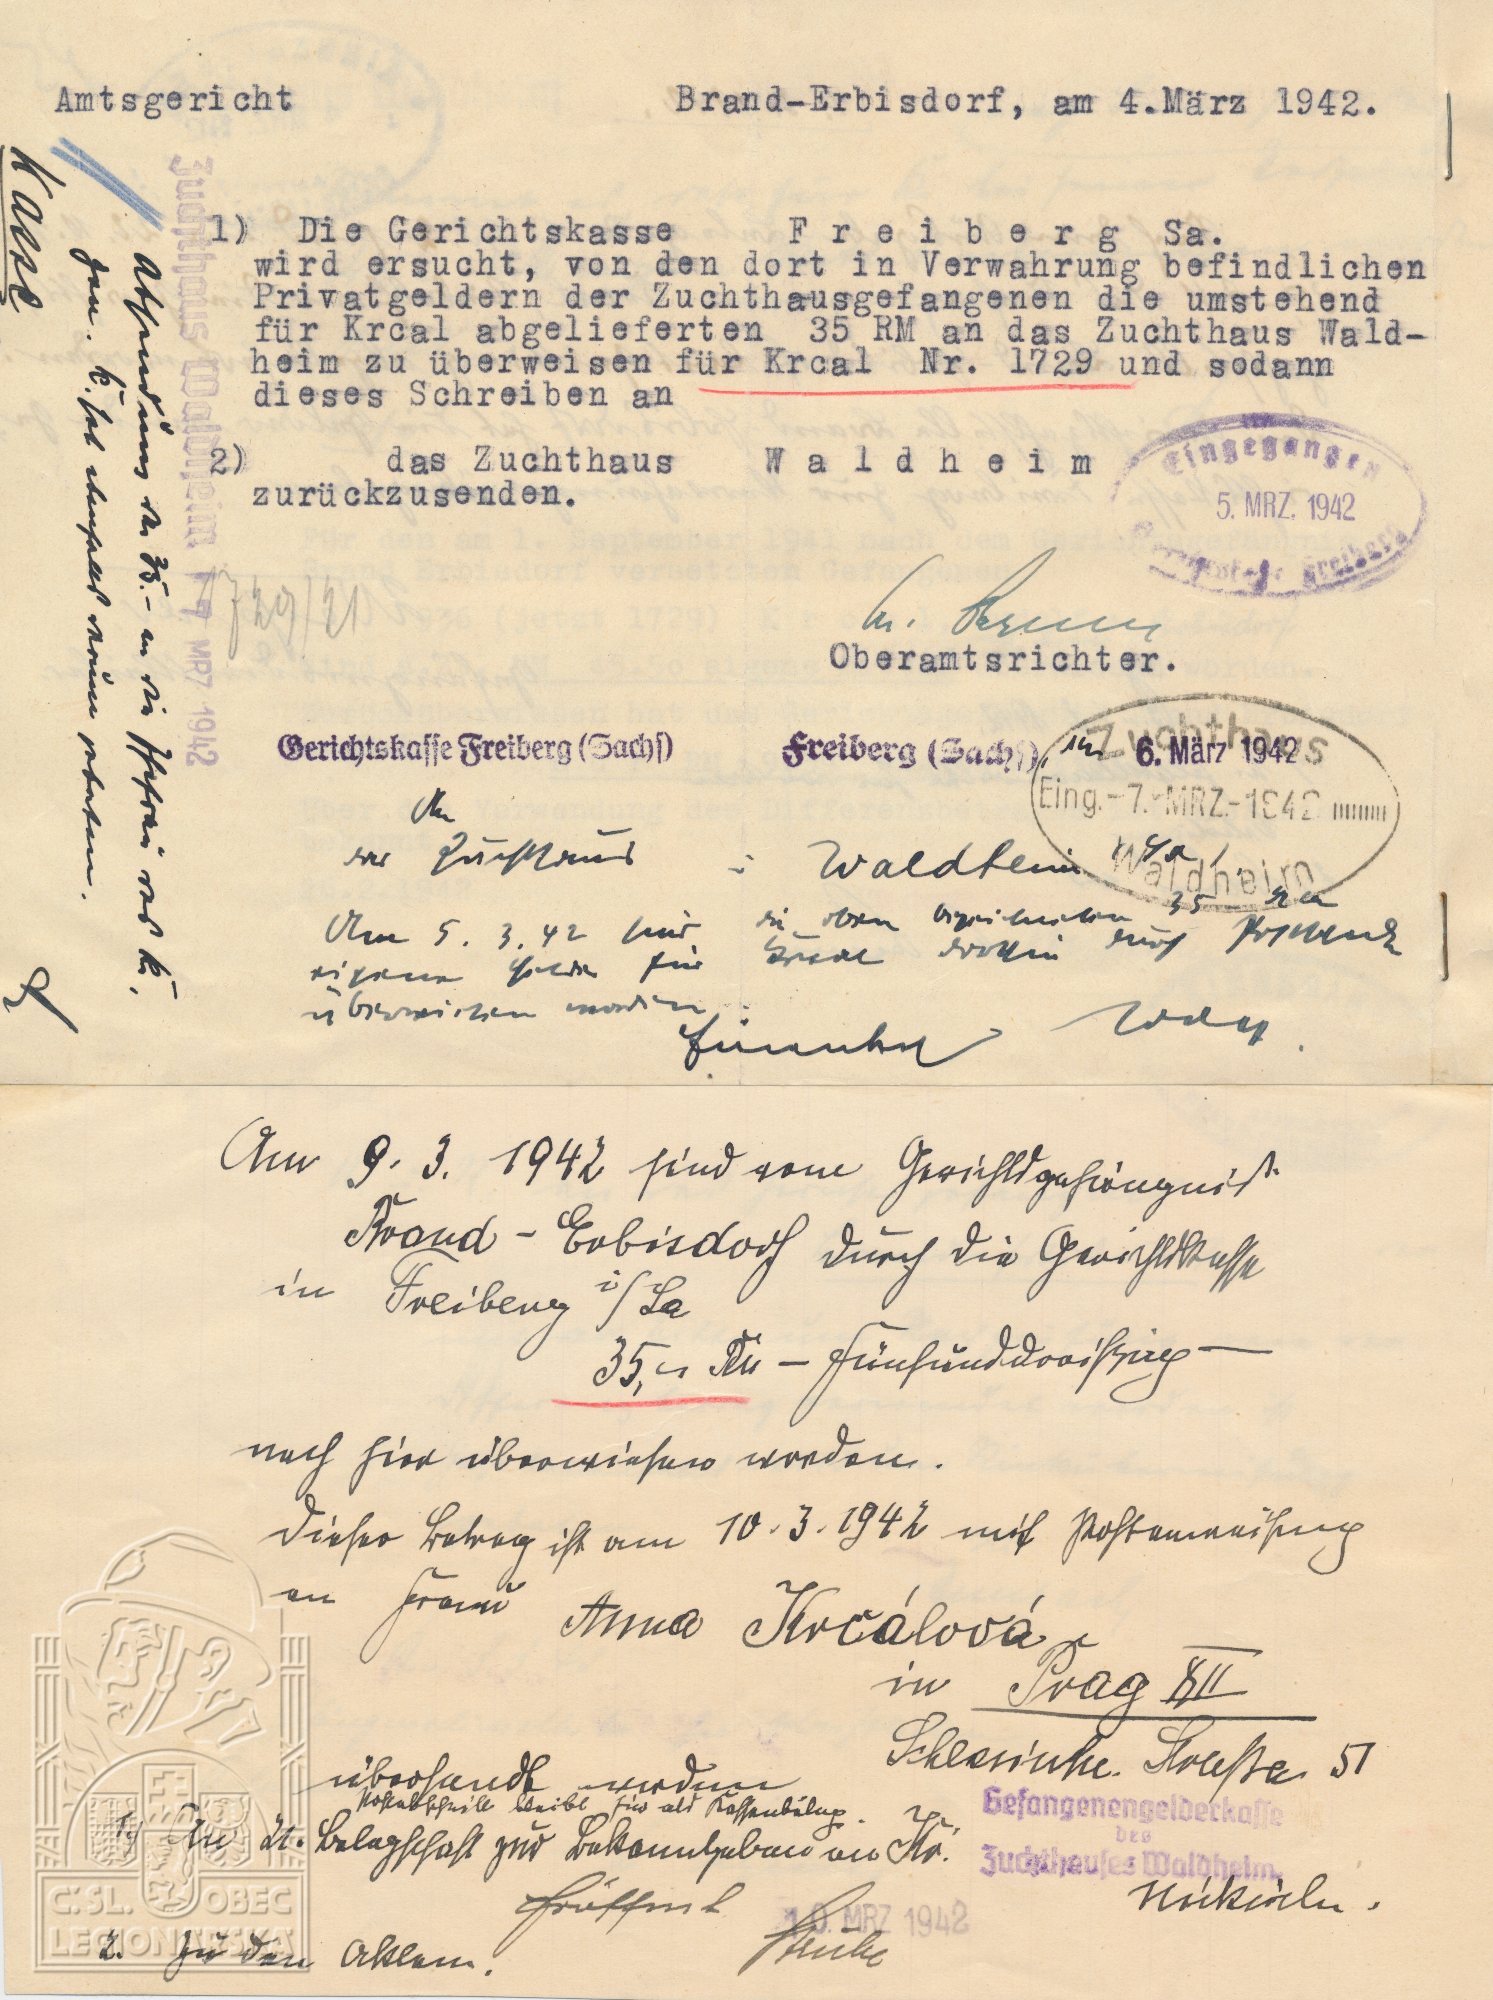 Amtsgericht Brand-Erbisdorf, am 4.März 1942.
1) Die Gerichtskasse F r e i b e r g Sa.
wird ersucht, von den dort in Verwahrung befindlichen
Privatgeldern der Zuchthausgefangenen die umstehend
für Krcal abgelieferten 35 RM an das Zuchthaus Wald-
heim zu überweisen für Krcal Nr. 1729 und sodann
dieses Schreiben an
2) das Zuchthaus W a l d h e i m
zurückzusenden.
Eingegangen
5. MRZ. 1942
Freiberg
Oberamtsrichter.
Zuchthaus Waldheim
7. MRZ 1942
1729/21
Kasse
Absendung der 35.- an die Ehefrau des K.
gen. K. hat darum gebeten.
Gerichtskasse Freiberg (Sachs) Freiberg (Sachs), den 6. März 1942
Zuchthaus
Eing. -7. MRZ. 1942
Waldheim
An
das Zuchthaus in Waldheim
Am 5.3.42 sind die oben bezeichneten 35 RM
eigene Gelder für Krcal dorthin durch Postscheck
überwiesen worden
Am 9. 3. 1942 sind vom Gerichtsgefängnis
Brand-Erbisdorf durch die Gerichtskasse
in Freiberg i/Sa
35,- RM - Fünfunddreißig -
nach hier überwiesen worden.
Dieser Betrag ist am 10.3.1942 mit Postanweisung
an Frau Anna Krčálová
in Prag XII
Schlesische Straße 51
übersandt worden
Postabschnitt bleibt hier als Kassenbeleg.
1.) An 21. Belegschaft zur Bekanntgaben an Kr.
Gefangenengelderkasse
des
Zuchthauses Waldheim
Eröffnet
10. MRZ 1942
2. Zu den Akten.
Č.SL. OBEC
LEGIONÁŘSKÁ